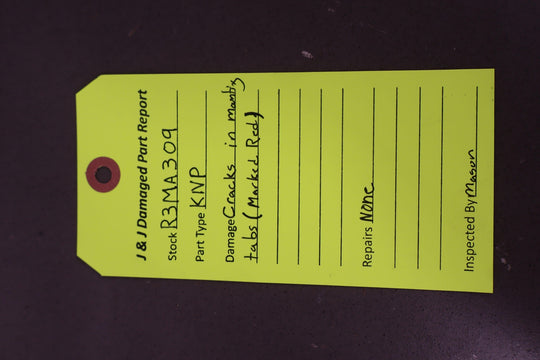 J & J Damaged Part Report
Stock R3MA309
Part Type KNP
Damage Cracks in
tabs (Marked Red)
Repairs None
Inspected By Mason